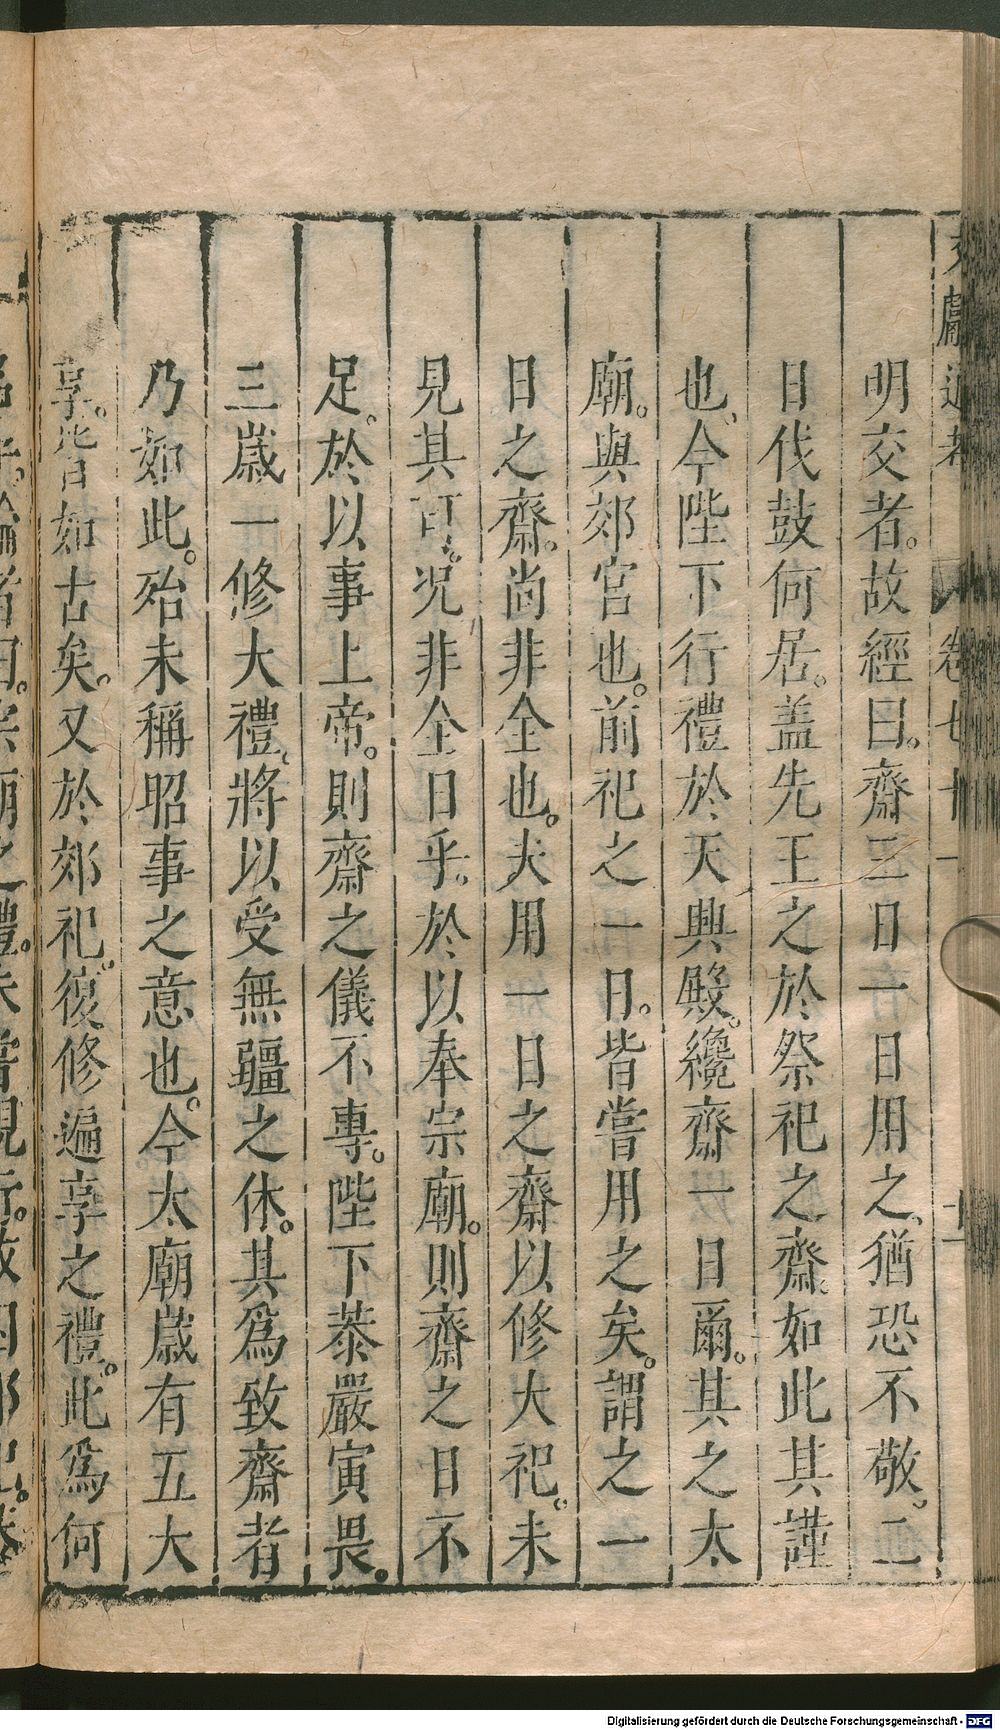 文獻通考 卷七十一 十二
明交者。故經曰。齋三日一日用之、猶恐不敬。二
日伐鼓何居。盖先王之於祭祀之齋。如此其謹
也、今陛下行禮於天興殿。纔齋一日爾。其之太
廟。與郊宮也。前祀之一日。皆嘗用之矣。謂之一
日之齋。尚非全也。夫用一日之齋以修大祀。未
見其可。况非全日乎。於以奉宗廟。則齋之日不
足。於以事上帝。則齋之儀不專。陛下恭嚴寅畏。
三歲一修大禮、將以受無疆之休。其爲致齋者
乃如此。殆未稱昭事之意也。今太廟歲有五大
享。皆如古矣。又於郊祀。復修遍享之禮。此爲何
Digitalisierung gefördert durch die Deutsche Forschungsgemeinschaft - DFG